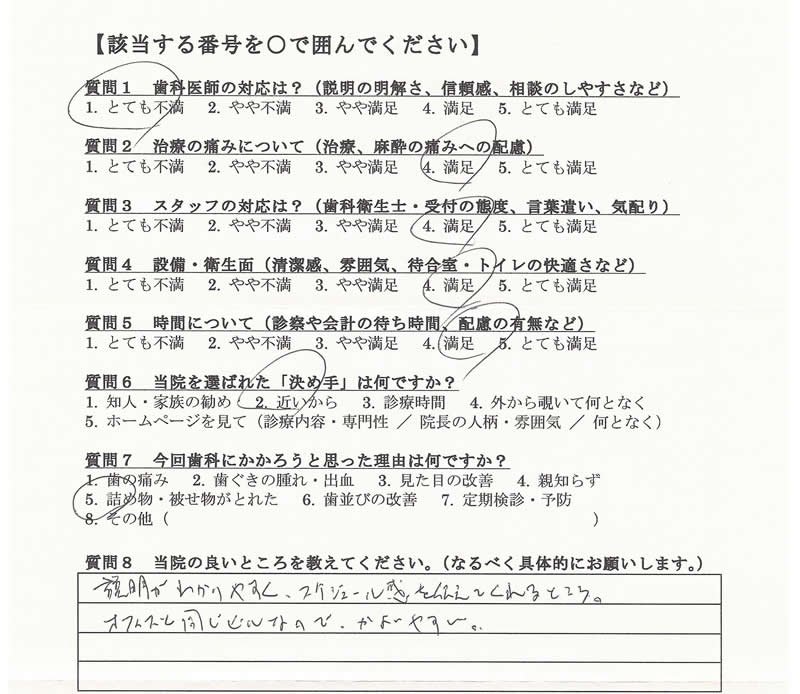 【該当する番号を〇で囲んでください】
質問1　歯科医師の対応は？（説明の明解さ、信頼感、相談のしやすさなど）
1. とても不満　2. やや不満　3. やや満足　4. 満足　5. とても満足
質問2　治療の痛みについて（治療、麻酔の痛みへの配慮）
1. とても不満　2. やや不満　3. やや満足　4. 満足　5. とても満足
質問3　スタッフの対応は？（歯科衛生士・受付の態度、言葉遣い、気配り）
1. とても不満　2. やや不満　3. やや満足　4. 満足　5. とても満足
質問4　設備・衛生面（清潔感、雰囲気、待合室・トイレの快適さなど）
1. とても不満　2. やや不満　3. やや満足　4. 満足　5. とても満足
質問5　時間について（診察や会計の待ち時間、配慮の有無など）
1. とても不満　2. やや不満　3. やや満足　4. 満足　5. とても満足
質問6　当院を選ばれた「決め手」は何ですか？
1. 知人・家族の勧め　2. 近いから　3. 診療時間　4. 外から覗いて何となく
5. ホームページを見て（診療内容・専門性 ／ 院長の人柄・雰囲気 ／ 何となく）
質問7　今回歯科にかかろうと思った理由は何ですか？
1. 歯の痛み　2. 歯ぐきの腫れ・出血　3. 見た目の改善　4. 親知らず
5. 詰め物・被せ物がとれた　6. 歯並びの改善　7. 定期検診・予防
8. その他（　　　　　　　　　　）
質問8　当院の良いところを教えてください。（なるべく具体的にお願いします。）
説明がわかりやすく、スケジュール感を伝えてくれるところ。
オフィスと同じビルなので、かよいやすい。